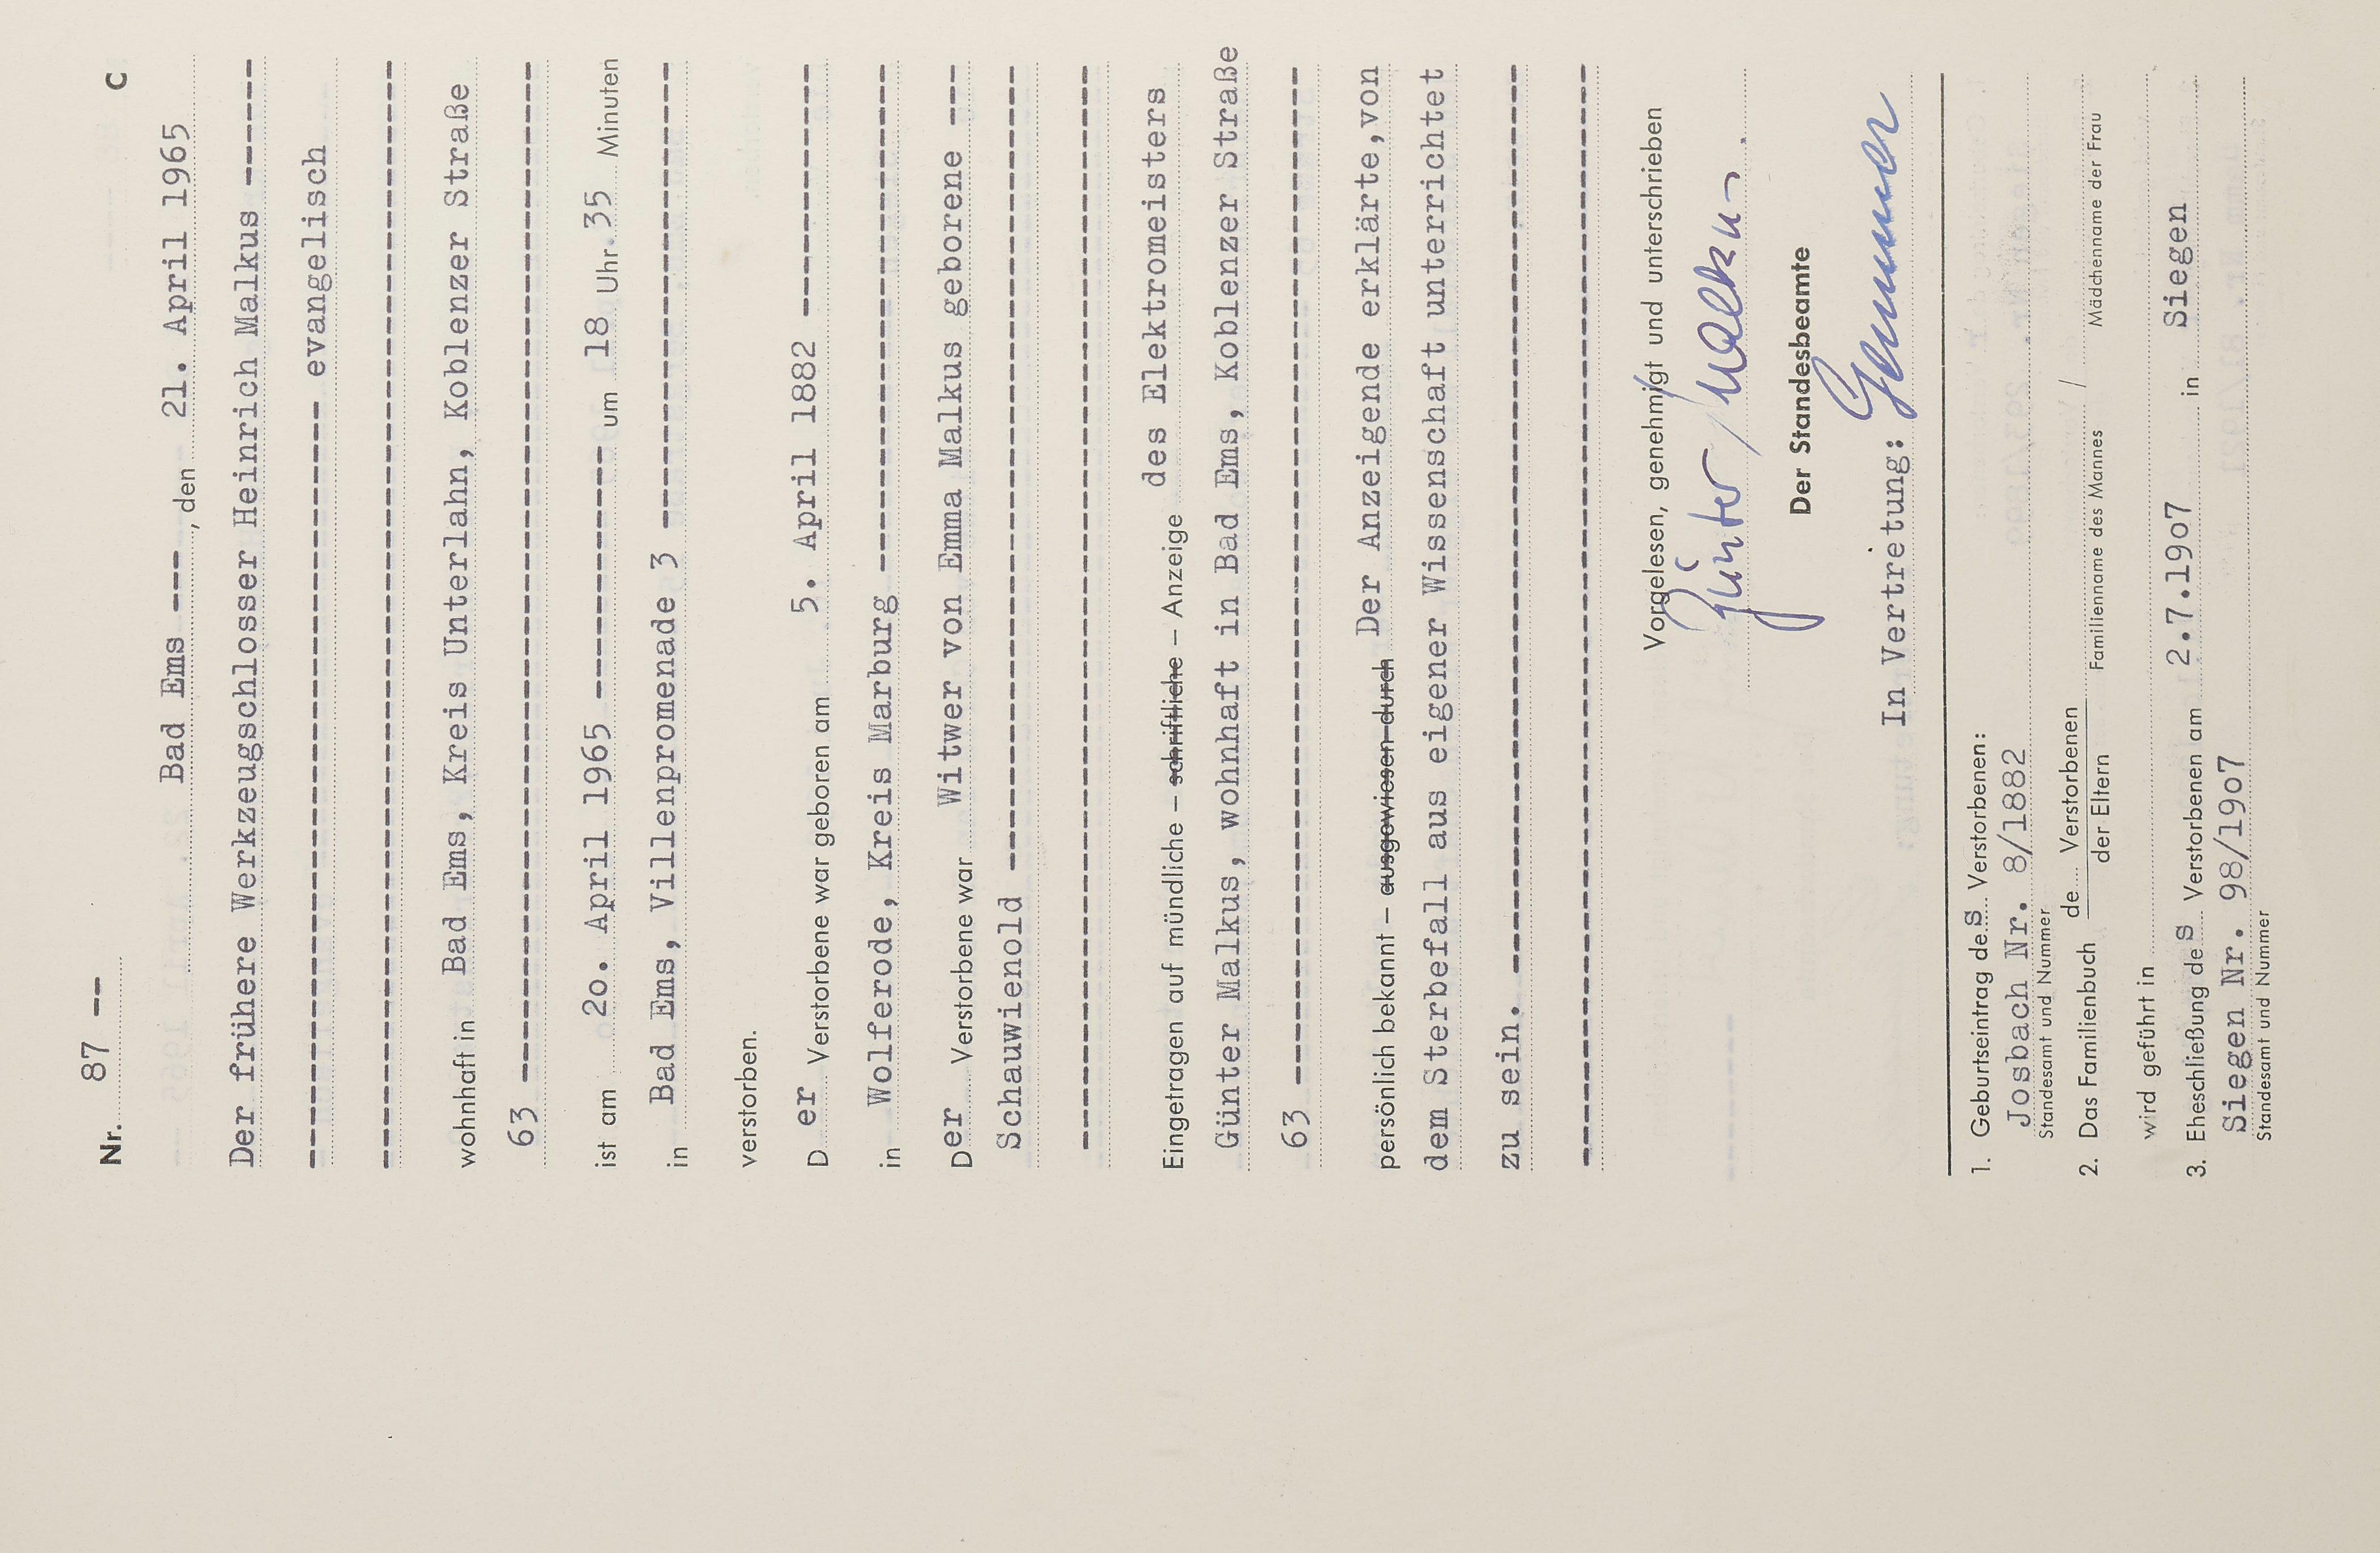 Nr. 87 -- C
Bad Ems ---, den 21. April 1965
Der frühere Werkzeugschlosser Heinrich Malkus ------
---------------------------------- evangelisch
wohnhaft in Bad Ems, Kreis Unterlahn, Koblenzer Straße
63 ------------------------------------------------
ist am 2o. April 1965 ----------- um 18 Uhr 35 Minuten
in Bad Ems, Villenpromenade 3 ----------------------
verstorben.
Der Verstorbene war geboren am 5. April 1882 -----------
in Wolferode, Kreis Marburg ------------------------
Der Verstorbene war Witwer von Emma Malkus geborene ---
Schauwienold -------------------------------------
Eingetragen auf mündliche – schriftliche – Anzeige des Elektromeisters
Günter Malkus, wohnhaft in Bad Ems, Koblenzer Straße
63 ------------------------------------------------
persönlich bekannt – ausgewiesen durch Der Anzeigende erklärte, von
dem Sterbefall aus eigener Wissenschaft unterrichtet
zu sein. -------------------------------------------
Vorgelesen, genehmigt und unterschrieben
Günter Malkus
Der Standesbeamte
In Vertretung: Gemmer
1. Geburtseintrag des Verstorbenen:
Josbach Nr. 8/1882
Standesamt und Nummer
2. Das Familienbuch de Verstorbenen / 
der Eltern Familienname des Mannes Mädchenname der Frau
wird geführt in
3. Eheschließung des Verstorbenen am 2.7.19o7 in Siegen
Siegen Nr. 98/19o7
Standesamt und Nummer